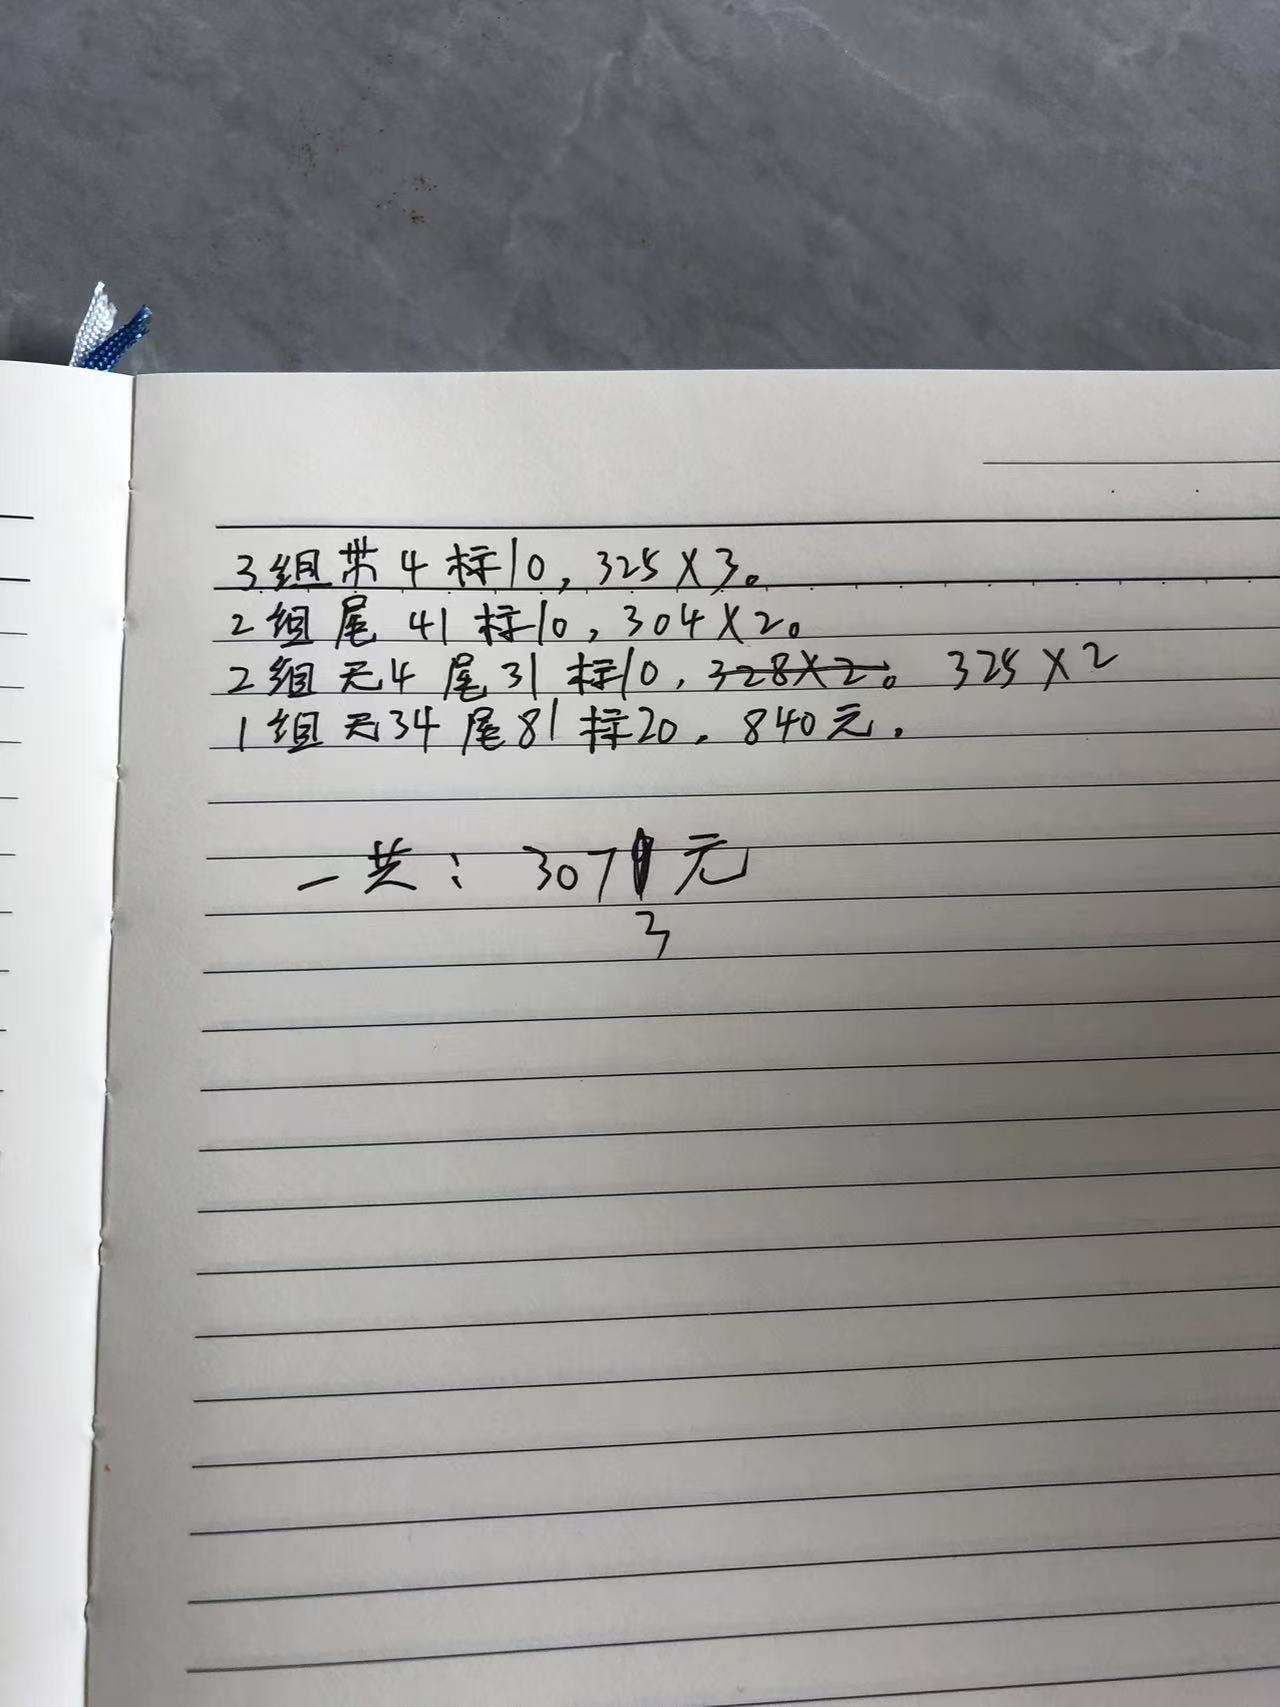 3组带4标10，325X3。
2组尾41标10，304X2。
2组无4尾31标10，328X2。325X2
1组无34尾81标20，840元．
一共：307元
3